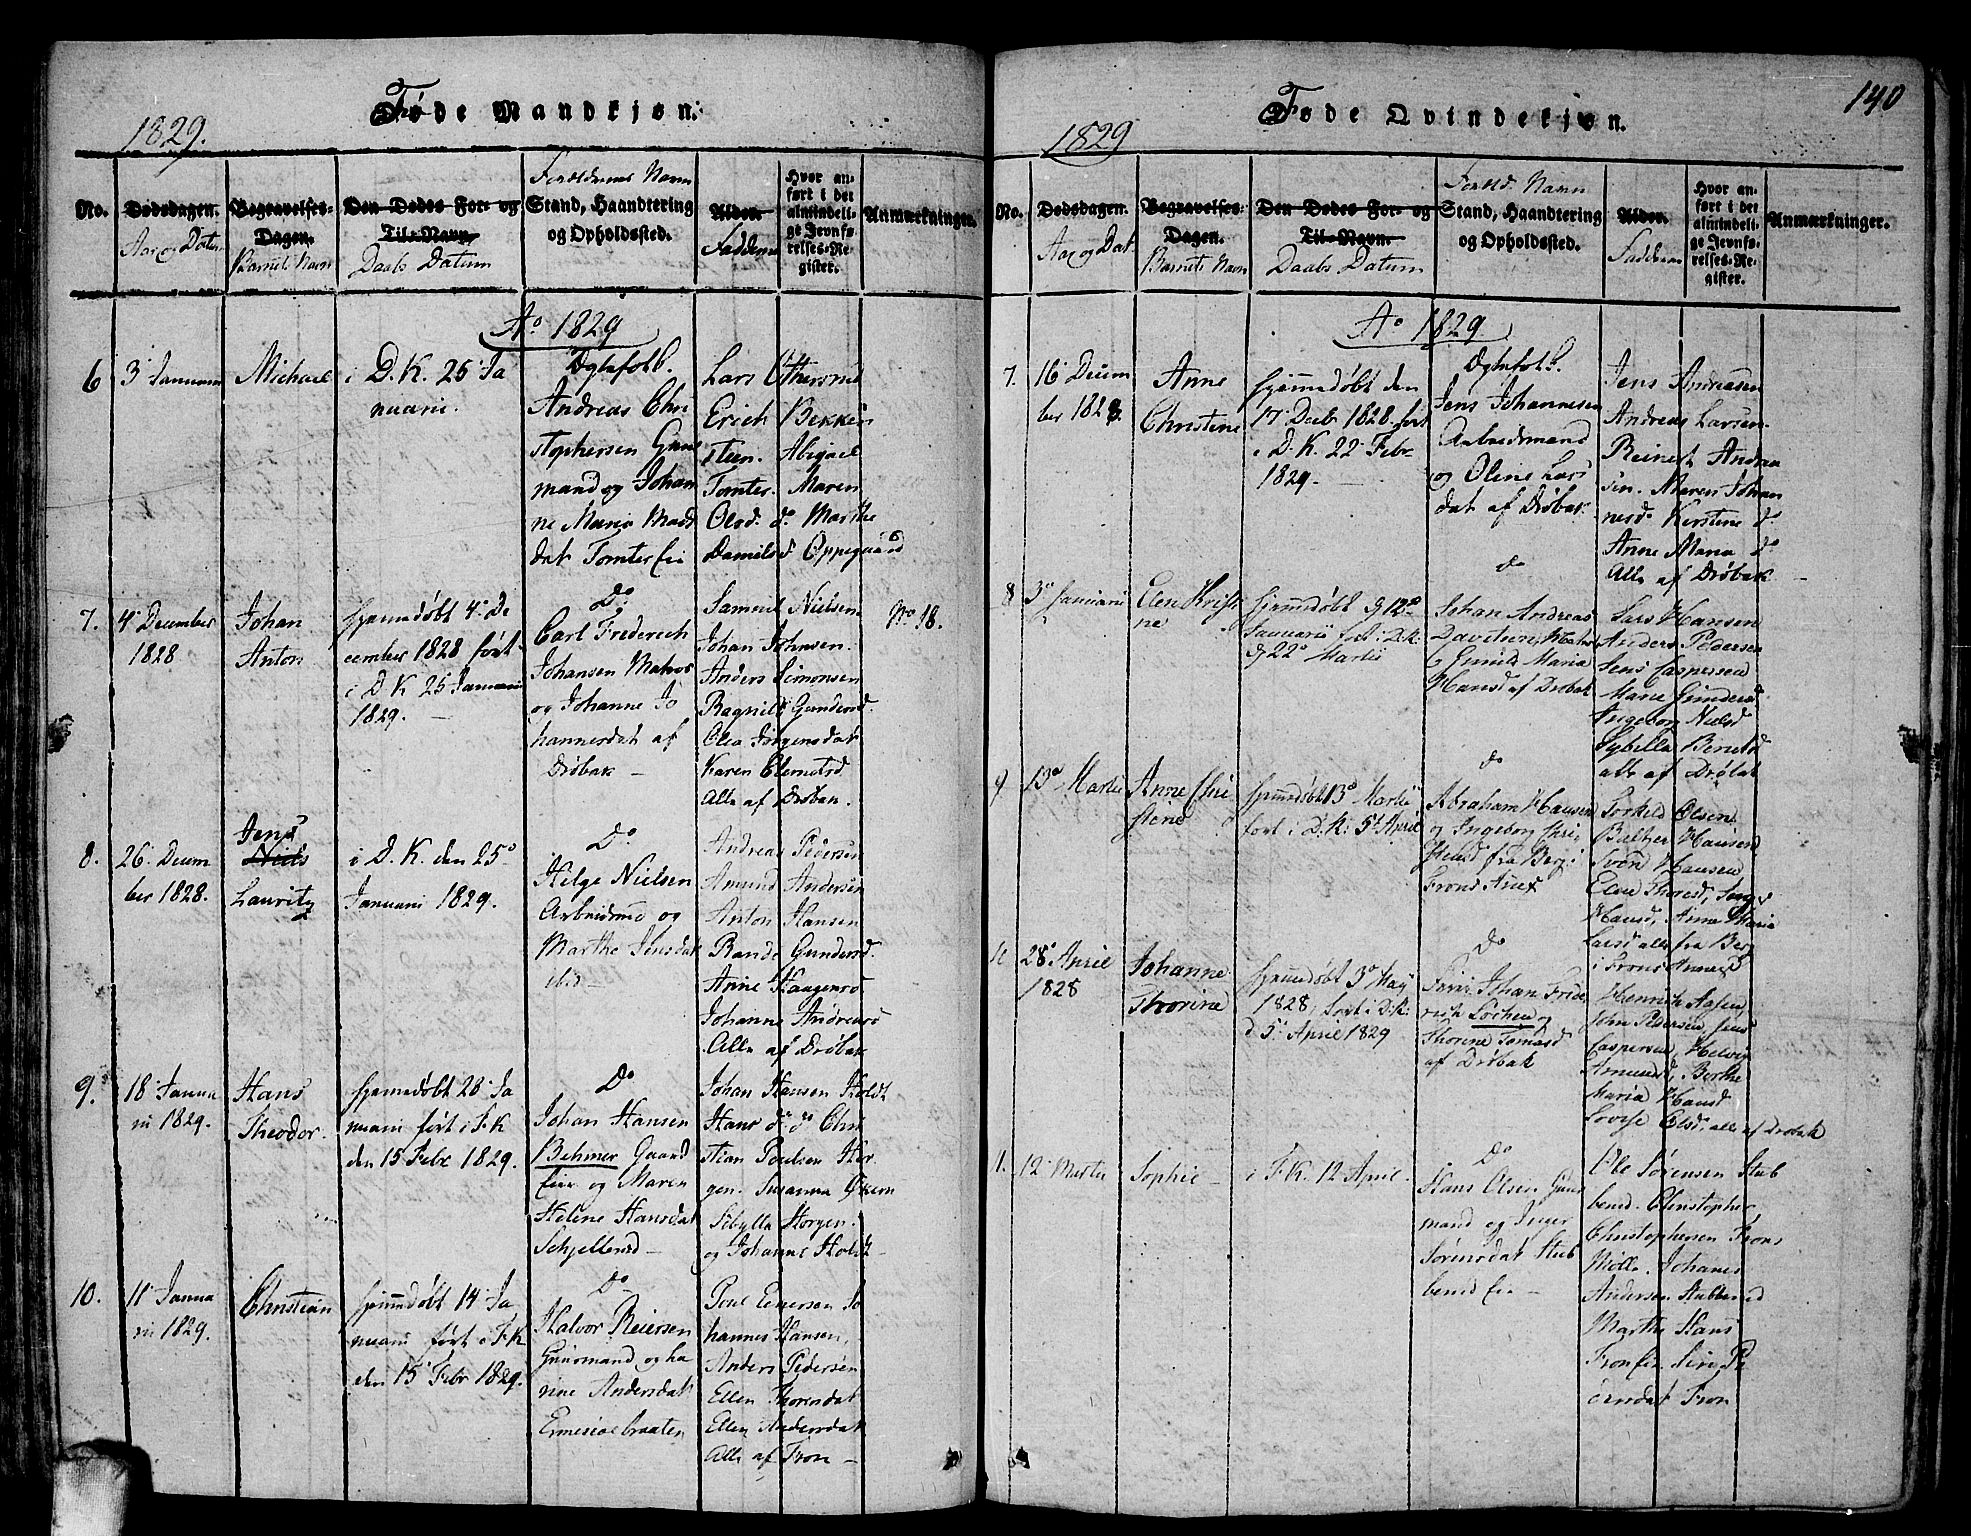 140
Føde Mandkjøn.
1829.
No.
Dødsdagen.
Aar og Datum
Begravelses-
Dagen.
Barnets Navn
Den Dødes For- og
Til-Navn.
Daabs Datum
Forældrenes Navn
Stand, Haandtering
og Opholdssted.
Alder.
Faddere
Hvor an-
ført i det
almindeli-
ge Jevnfø-
relses-Re-
gister.
Anmærkninger.
Ao 1829
6
3 Januari
Michael
i D. K. 25 Ja
nuarii.
Ægtefolk.
Andreas Chri
stophersen Gaar
mand og Johan
ne Maria Mads
dat Tomter eie
Lars Othersrud
Erich Bekken
steen. Abigael
Tomter. Maren
Olsd. do Marthe
Danielsd Oppegaard
7.
4 December
1828
Johan
Anton
hjemmedøbt 4 De
cember 1828 ført
i D K 25 Januarii
1829.
Do
Carl Frederich
Johansen Matros
og Johanne Jo
hannesdat af
Drøbak
Samuel Nielsen
Johan Johnsen.
Anders Simonsen
Ragnild Gundersd.
Olea Jørgensdat
Karen Clemetsd
Alle af Drøbak.
No 18.
8.
26 Decem
ber 1828.
Jens
Niels
Lauritz
i D. K. den 25o
Januarii 1829.
Do
Helge Nielsen
Arbeidsmd og
Marthe Jensdat
ibid
Andreas Pedersen
Amund Andersen
Anton Hansen
Rande Gundersd.
Anne Haagensd
Johanne Andreasd
Alle af Drøbak
9.
18 Janua
rii 1829.
Hans
Theodor.
hjemmedøbt 28 Ja
nuarii ført i F. K
den 15 Febr 1829.
Do
Johan Hansen
Behmer Gaard
eier og Maren
Helene Hansdat
Schjellerud
Johan Hansen Holdt
Hans do do Chri
stian Poulsen Hor
gen. Susanna Økern
Sibylla Horgen.
og Johanne Holdt
10.
11 Janua
rii 1829.
Christian
hjemmedøbt 14 Ja
nuarii ført i F. K
den 15 Febr 1829.
Do
Halvor Reiersen
Huusmand og Ka
rine Andersdat
Ermesjøebraaten
Poul Enersen Jo
hannes Hansen,
Anders Pedersen
Ellen Thoresdat
Ellen Andersdat
Alle af Fron
Føde Qvindekjøn.
1829
No.
Dødsdagen.
Aar og Dat
Begravelses-
Dagen.
Barnets Navn
Den Dødes For- og
Til-Navn.
Daabs Datum
Foreld. Navn
Stand, Haandtering
og Opholdssted.
Alder.
Faddere
Hvor an-
ført i det
almindeli-
ge Jevnfø-
relses-Re-
gister.
Anmærkninger.
Ao 1829
7.
16 Decem
ber 1828.
Anne
Christine
hjemmedøbt den
17 Decb 1828 ført
i D. K. 22 Febr
1829.
Ægtefolk.
Jens Johannesen
Arbeidsmand
og Oline Lars
dat af Drøbak
Jens Andreasen
Andreas Larsen.
Reinert Andrea
sen. Maren Johan
nesd. Kirstine do
Anne Maria do
Alle af Drøbak
8
3o Januarii
Elen Kristi
ne
hjemmedøbt d 12o
Januarii ført i D.K:
d 22o Martii
do
Johan Andreas
Davidsen, Matr.
Hansd af Drøbak
Lars Hansen
Anders Pedersen
Jens Caspersen
Marie Gundersd
Ingeborg Nielsd
Sybilla Berntsd
alle af Drøbak
9
13o Martii
Anne Chri
stine
hjemmedøbt 13o Martii
ført i D. K: 5t April
do
Abraham Hansen
og Ingeborg Chri
stensd fra Berg i
Frons Anex
Torkild Olsen
Baltzer Hansen
Sven Hansen
Elne Thoresd,
Hansd, Anne Maria
Larsd alle fra Berg
i Frons Annex
28 April
1828
Johanne
Thorine
hjemmedøbt 3o May
1828, ført i D. K:
d. 5t April 1829
Do
Johan Fride
rich Lochen og
Thorine Tomasd
af Drøbak
Henrich Aasen,
John Pedersen, Jens
Caspersen, Helvig
Amundsd, Berthe
Maria Hansd
Lovise Olsd, alle af Drøbak
11.
12 Martii
Sophie
i F. K. 12 April.
Do
Hans Olsen Huus
mand og Inger
Sørensdat Stub
berud eie
Ole Sørensen Stub
berud. Christopher
Christophersen Frons
Mølle. Johanes
Andersen Stubberud
Marthe Hans
Fron eie. Siri Pe
dersdat Fron